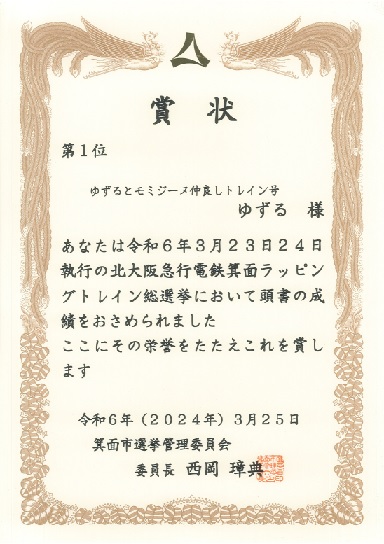 賞状
第1位
ゆずるとモミジーヌ仲良しトレイン号
ゆずる 様
あなたは令和6年3月23日24日
執行の北大阪急行電鉄箕面ラッピン
グトレイン総選挙において頭書の成
績をおさめられました
ここにその栄誉をたたえこれを賞し
ます
令和6年（2024年）3月25日
箕面市選挙管理委員会
委員長 西岡 璋典